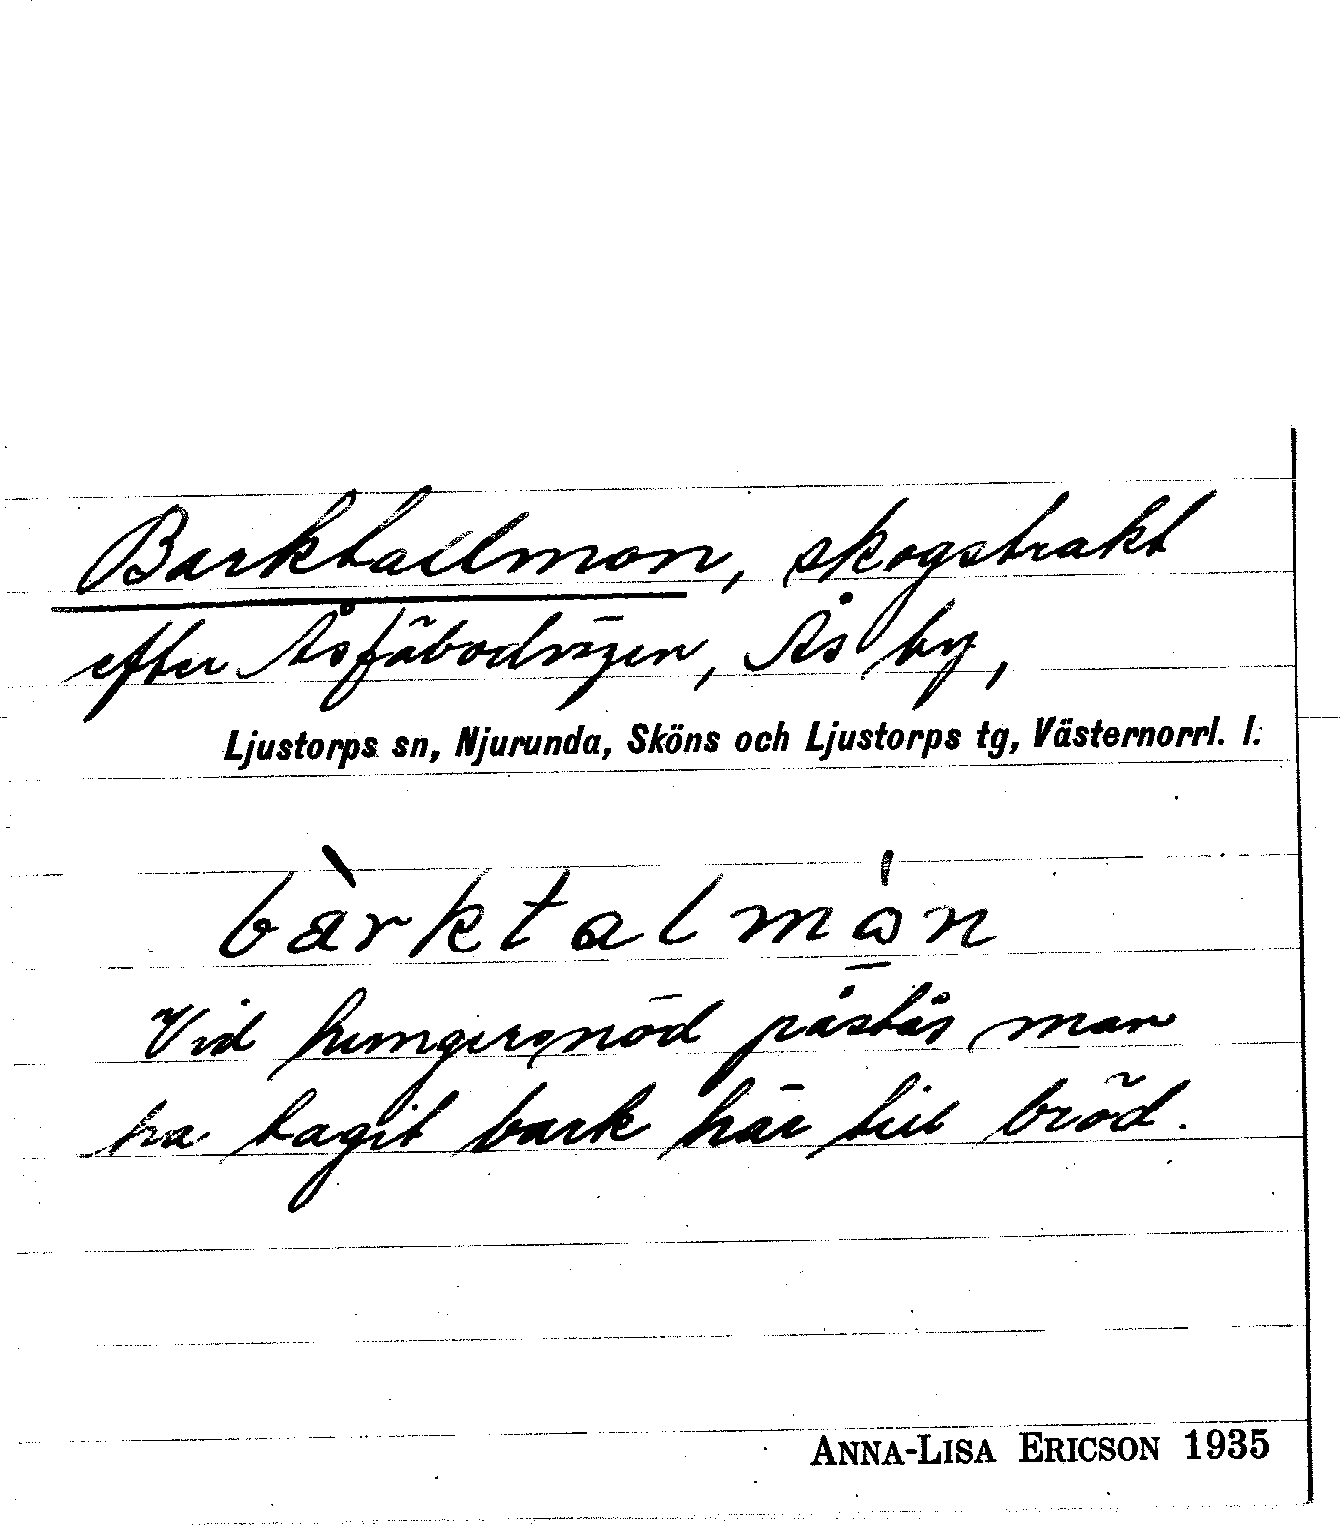 Barktallmon, skogstrakt
efter Åsfäbodvägen, Ås by,
Ljustorps sn, Njurunda, Sköns och Ljustorps tg, Västernorrl. l.
bàrktalmȧ̱n
Vid hungersnöd påstås man
ha tagit bark här till bröd.
ANNA-LISA ERICSON 1935